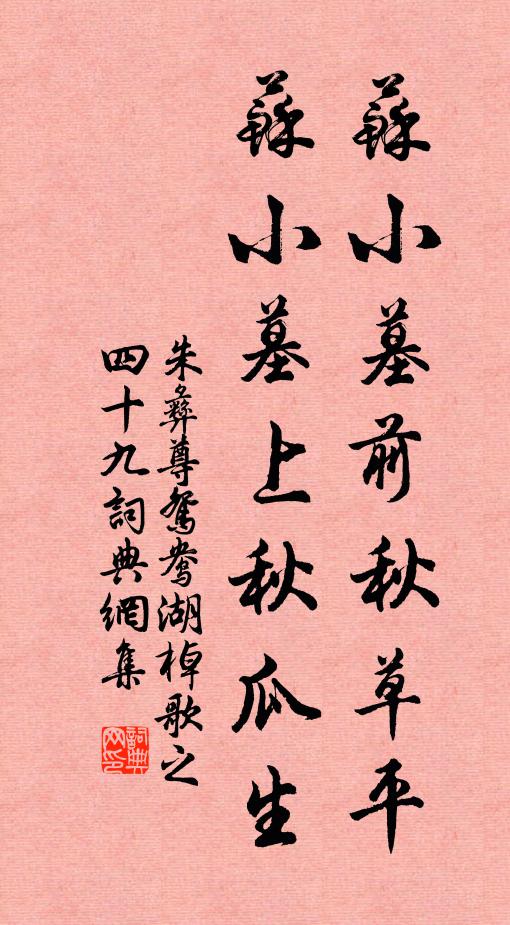 蘇小墓前秋草平
蘇小墓上秋瓜生
朱彝尊鴛鴦湖棹歌之
四十九詞典網集
詞典
网印